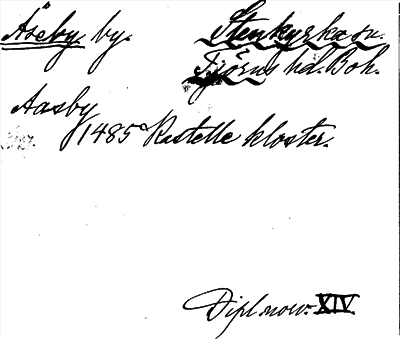 Åseby by. Stenkyrka sn.
Tjörns hd. Boh.
Aasby
1485 Kastelle kloster.
Dipl. norv. XIV.